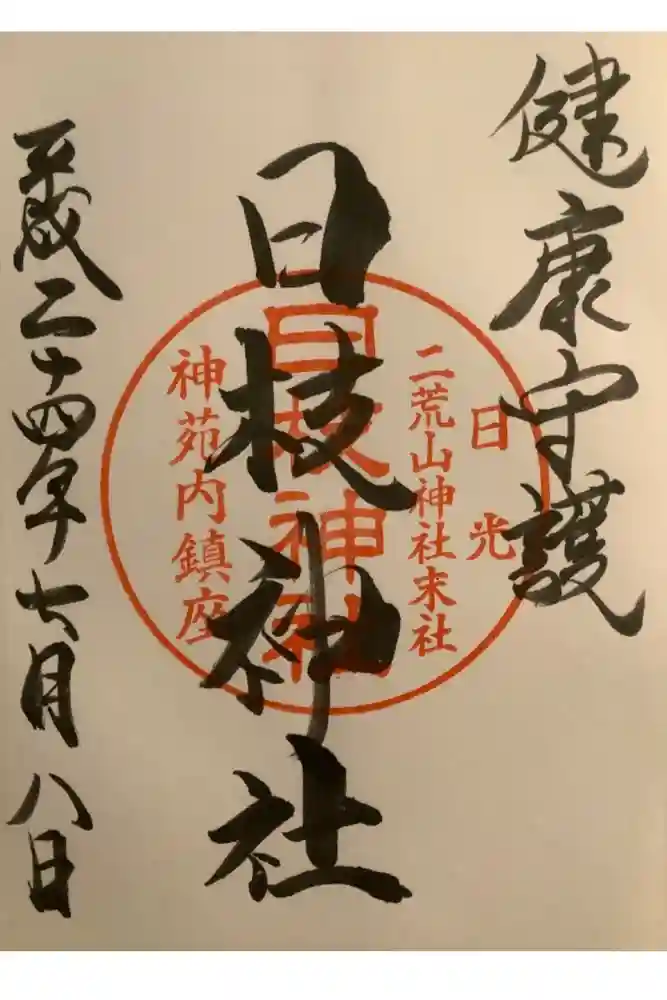 健康守護
日光
二荒山神社末社
日枝神社
日枝神社
神苑内鎮座
平成二十四年七月八日